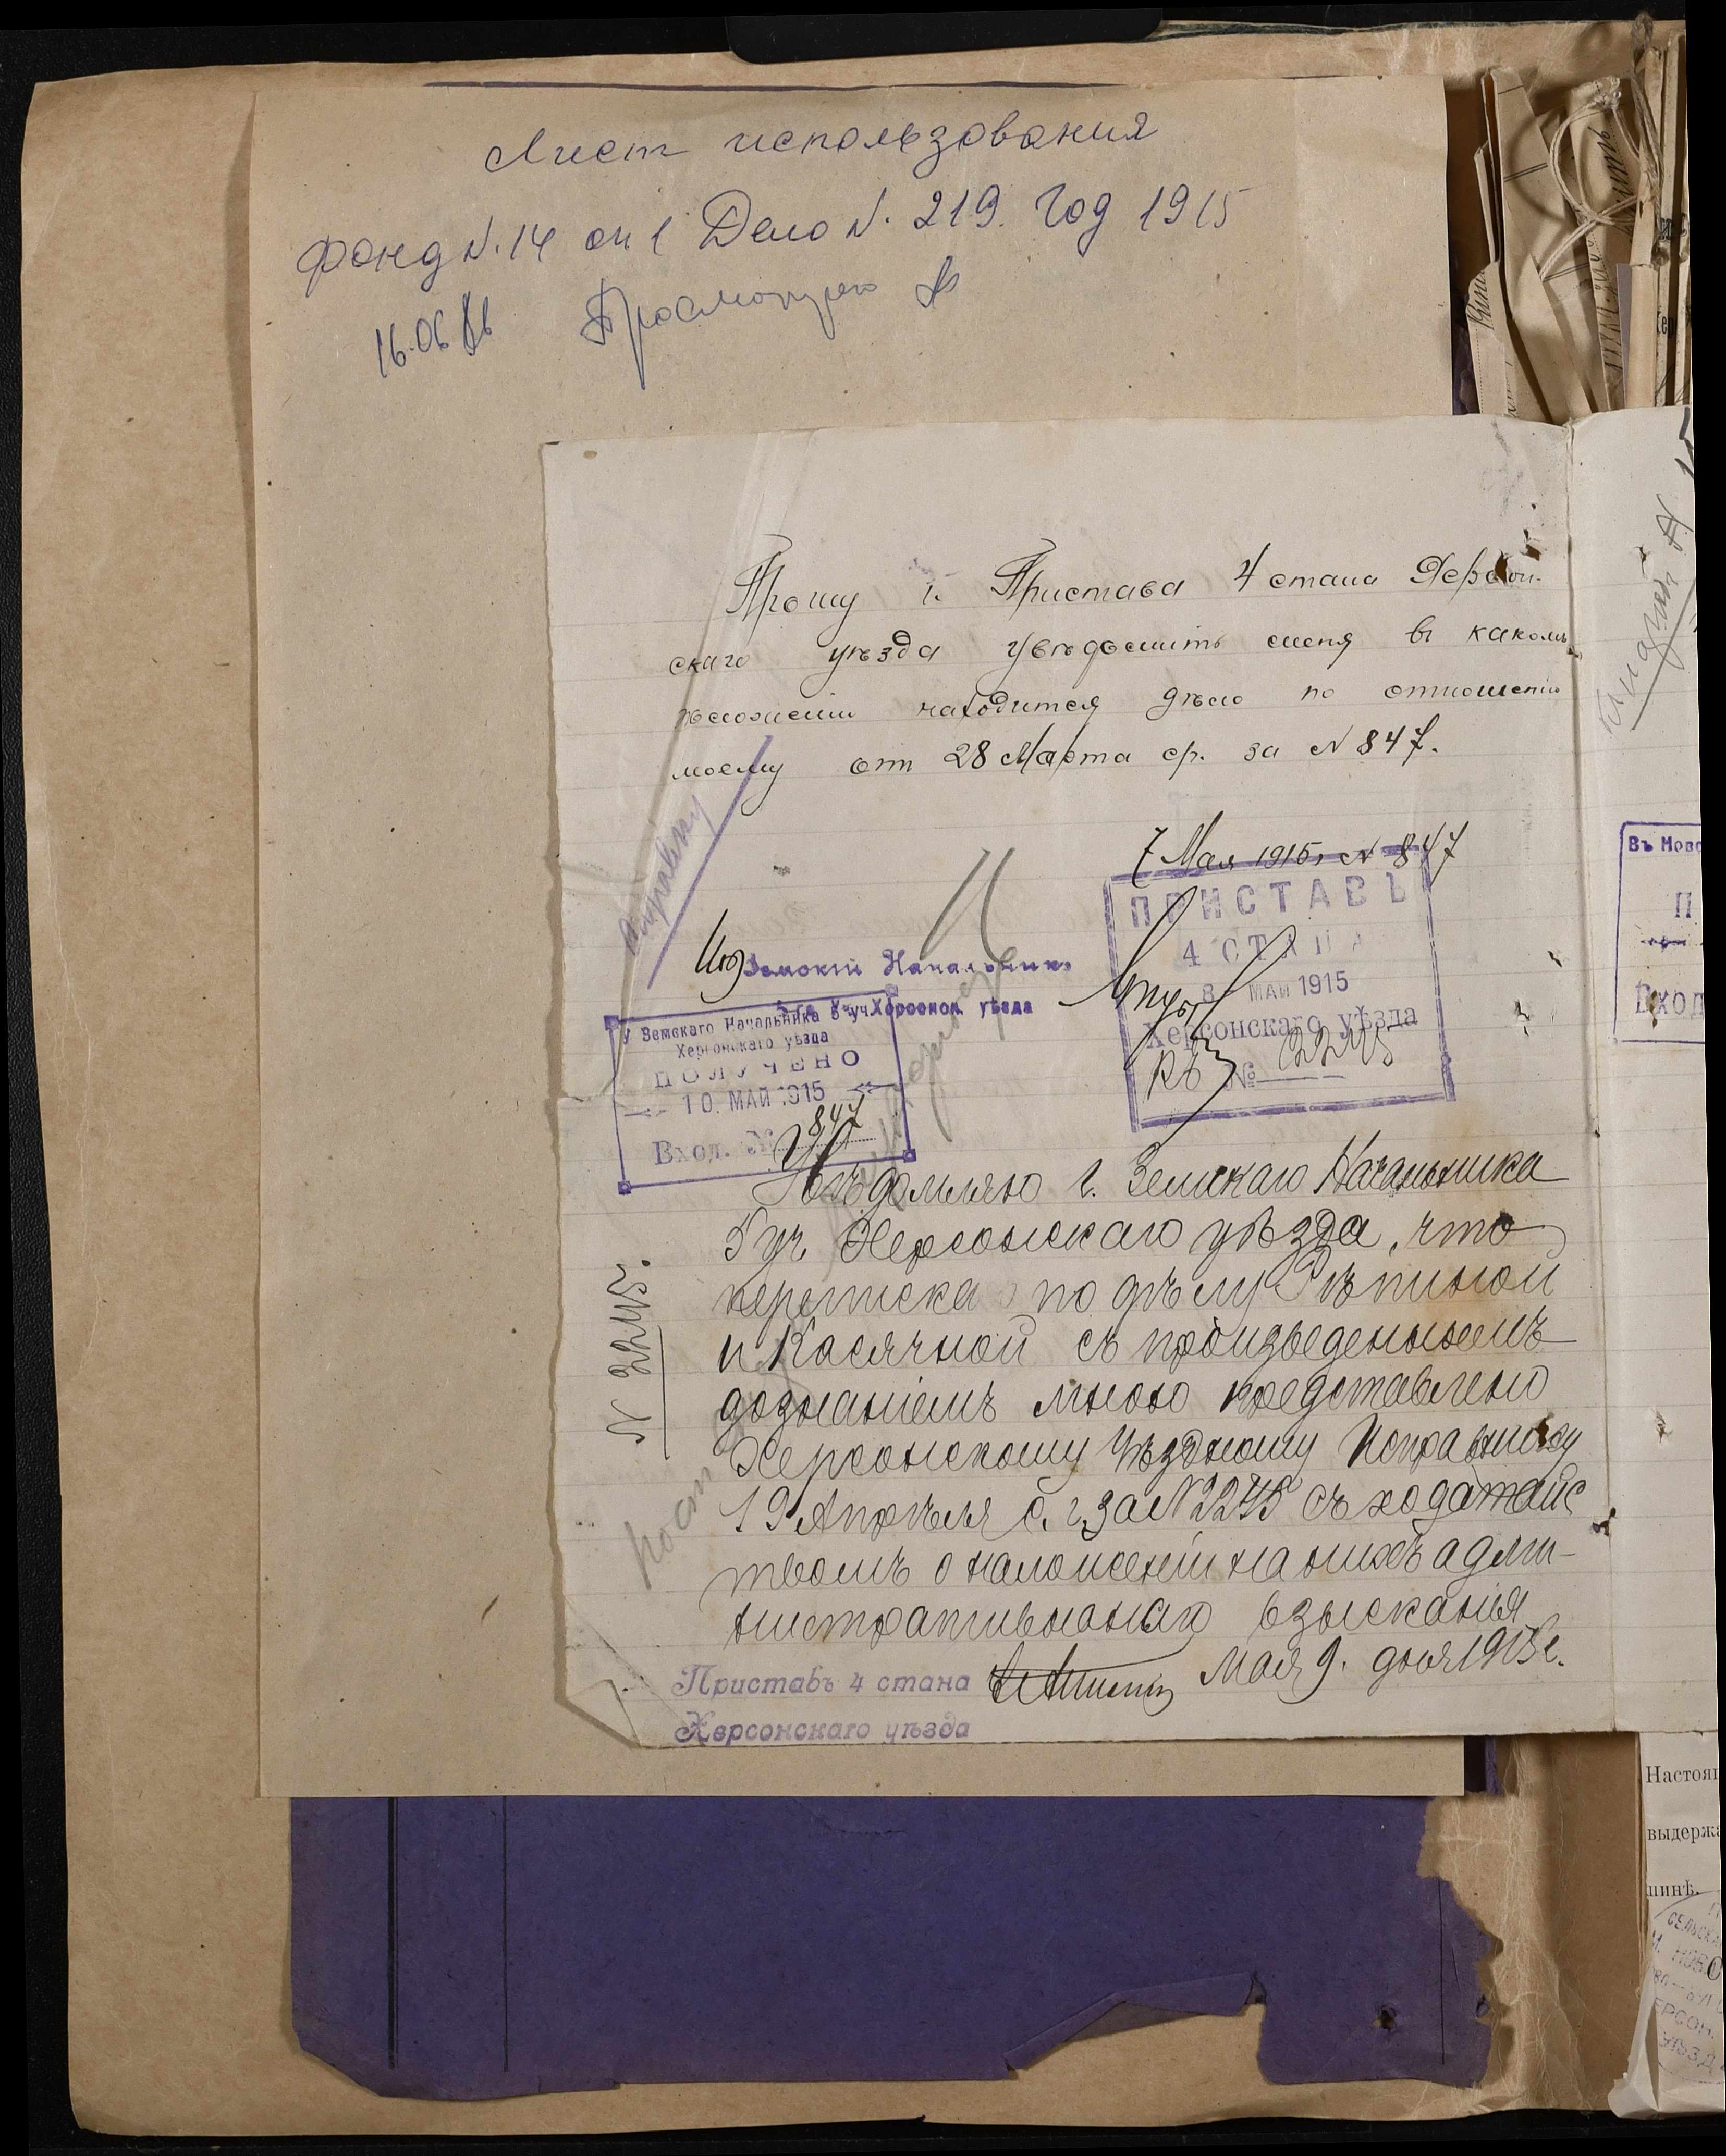 Лист использования
Фонд N. 14 оп 1 Дело N. 219. Год 1915
16.06.86 Просмотрено
Прошу г. Пристава 4 стана Херсон-
скаго уѣзда увѣдомить меня въ какомъ
положеніи находится дѣло по отношенію
моему отъ 28 Марта с.г. за N 847.
7 Мая 1915 г. N 847
ПРИСТАВЪ
4 СТАНА
8 МАЙ 1915
Херсонскаго уѣзда
№ 2245
Земскій Начальникъ
5-го Уч. Херсонск. уѣзда
У Земскаго Начальника 5 уч.
Херсонскаго уѣзда
ПОЛУЧЕНО
10. МАЙ 1915
Вход. №
847
Увѣдомляю г. Земскаго Начальника
5 уч. Херсонскаго уѣзда, что
переписка по дѣлу Рѣпиной
и Касячной съ произведеннымъ
дознаніемъ мною представлено
Херсонскому Уѣздному Исправнику
19 Апрѣля с. г. за N 2245 съ ходатайс
твомъ о наложеніи на нихъ адми-
нистративнаго взысканія
Мая 9. дня 1915 г.
N 2245.
Приставъ 4 стана
Херсонскаго уѣзда
Въ Ново
П
Вход
Настоящ
выдержа
шинѣ.